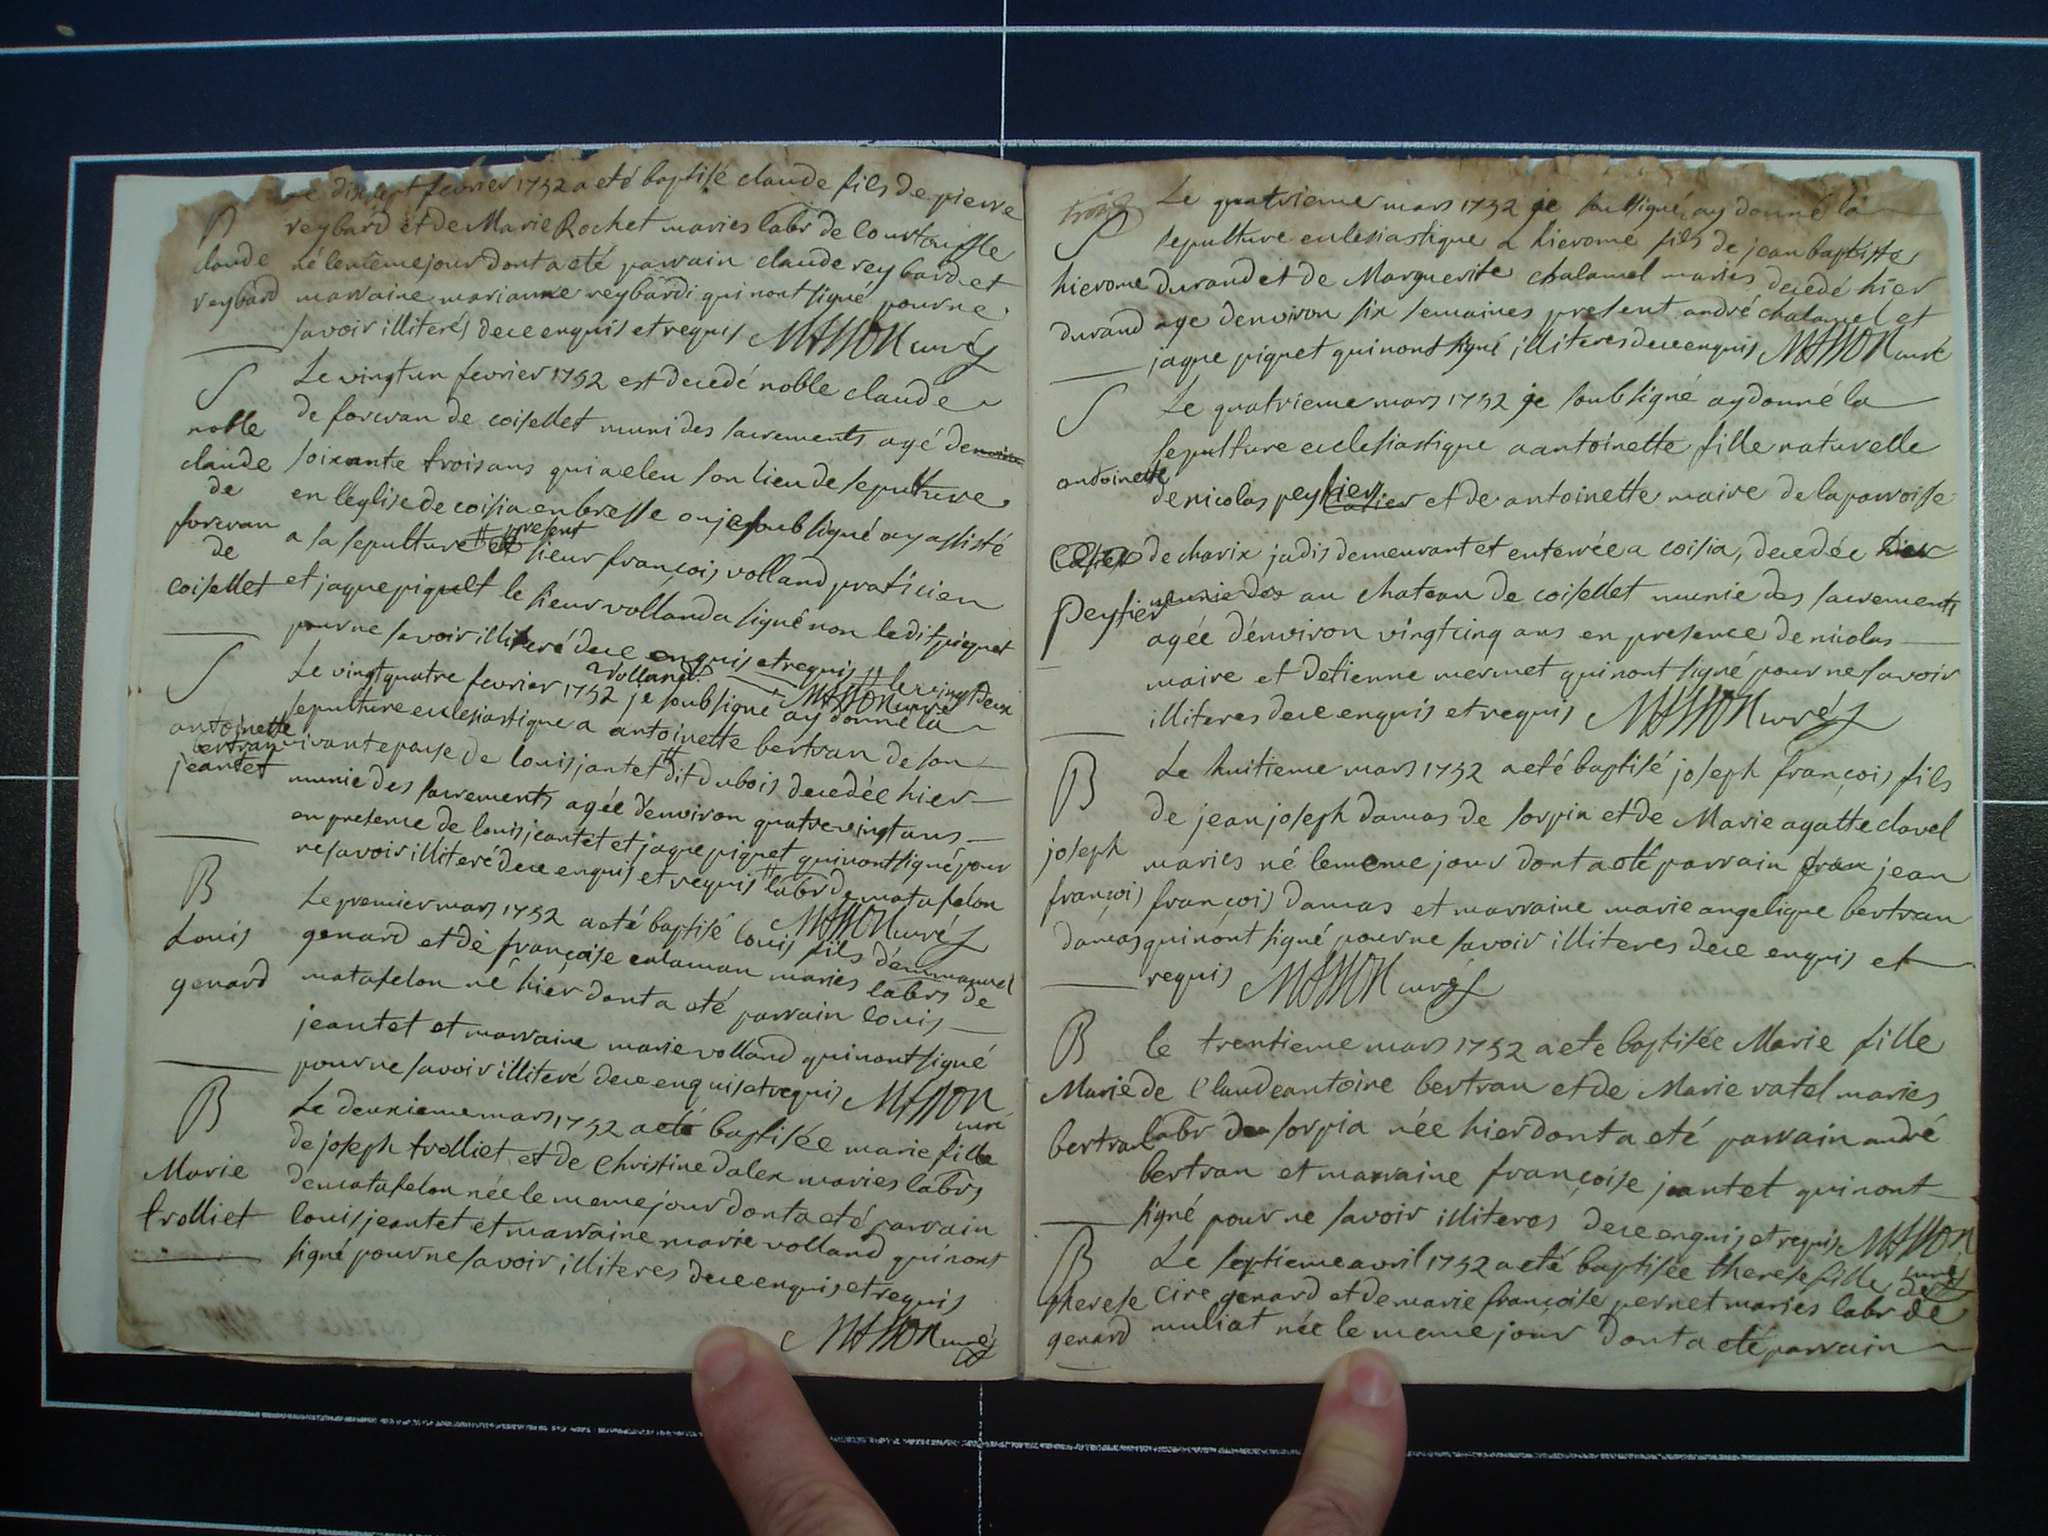 Le dixsept fevrier 1752 a eté baptisé claude fils de pierre
B reybard et de Marie Rochet maries labr de Courtouffle
claude né le meme jour dont a eté parrain claude reybard et
reybard marraine marianne reybardi qui nont signé pour ne
savoir illiterés de ce enquis et requis MASSON curé
S Le vingt un fevrier 1752 est decedé noble claude
noble de forcran de coisellet muni des sacrements agé denviron
claude soixante trois ans qui a eleu son lieu de sepulture
de en l'église de coisia en bresse ou je soubsigné ay assisté
forcran a sa sepulture # et present sieur françois volland praticien
de
coisellet et jaque piquet le sieur volland a signé non le dit piquet
pour ne savoir illiteré de ce enquis et requis # le vingt deux
Volland MASSON curé
S Le vingt quatre fevrier 1752 je soubsigné ay donné la
sepulture ecclesiastique a antoinette bertran de son
antoinette
bertran vivant epouse de louis jantet # dit dubois decedée hier
jeantet munie des sacrements agée d'environ quatre vingt ans
en presence de louis jeantet et jaque piquet qui nont signé pour
ne savoir illiteré de ce enquis et requis # labr de matafelon
MASSON curé
B Le premier mars 1752 a eté baptisé louis fils d'emmanuel
Louis genard et de françoise calaman maries labrs de
genard matafelon né hier dont a eté parrain louis
jeantet et marraine marie volland qui nont signé
pour ne savoir illiteré de ce enquis et requis MASSON
curé
B Le deuxieme mars 1752 a eté baptisée marie fille
de joseph trolliet et de Christine dalex maries labrs
Marie de matafelon née le meme jour dont a eté parrain
trolliet louis jeantet et marraine marie volland qui nont
signé pour ne savoir illiteres de ce enquis et requis
MASSON curé
Le quatrieme mars 1752 je soubsigné ay donné la
S sepulture eclesiastique a hierome fils de jean baptiste
hierome durand et de Marguerite chalamel maries decedé hier
durand age denviron six semaines present andré chalamel et
jaque piquet qui nont signé illiteres de ce enquis MASSON curé
S Le quatrieme mars 1752 je soubsigné ay donné la
sepulture ecclesiastique a antoinette fille naturelle
antoinette de nicolas peytier et de antoinette maire de la parroisse
de charix jadis demeurant et enterrée a coisia, decedée hier
peytier munie des au chateau de coisellet munie des sacrements
agée d'environ vingt cinq ans en presence de nicolas
maire et detienne mermet qui nont signé pour ne savoir
illiteres de ce enquis et requis MASSON curé
B Le huitieme mars 1752 a eté baptisé joseph françois fils
de jean joseph damas de sorpia et de Marie agatte clavel
joseph maries né le meme jour dont a eté parrain fran jean
françois françois damas et marraine marie angelique bertran
damas qui nont signé pour ne savoir illiteres de ce enquis et
requis MASSON curé
B le trentieme mars 1752 a ete baptisée Marie fille
Marie de Claude antoine bertran et de Marie ratel maries
bertran labr de sorpia née hier dont a eté parrain andré
bertran et marraine françoise jeantet qui nont
signé pour ne savoir illiteres de ce enquis et requis MASSON
curé
B Le septieme avril 1752 a eté baptisée therese fille de
therese Cire genard et de marie françoise pernet maries labr de
genard muliat née le meme jour dont a eté parrain